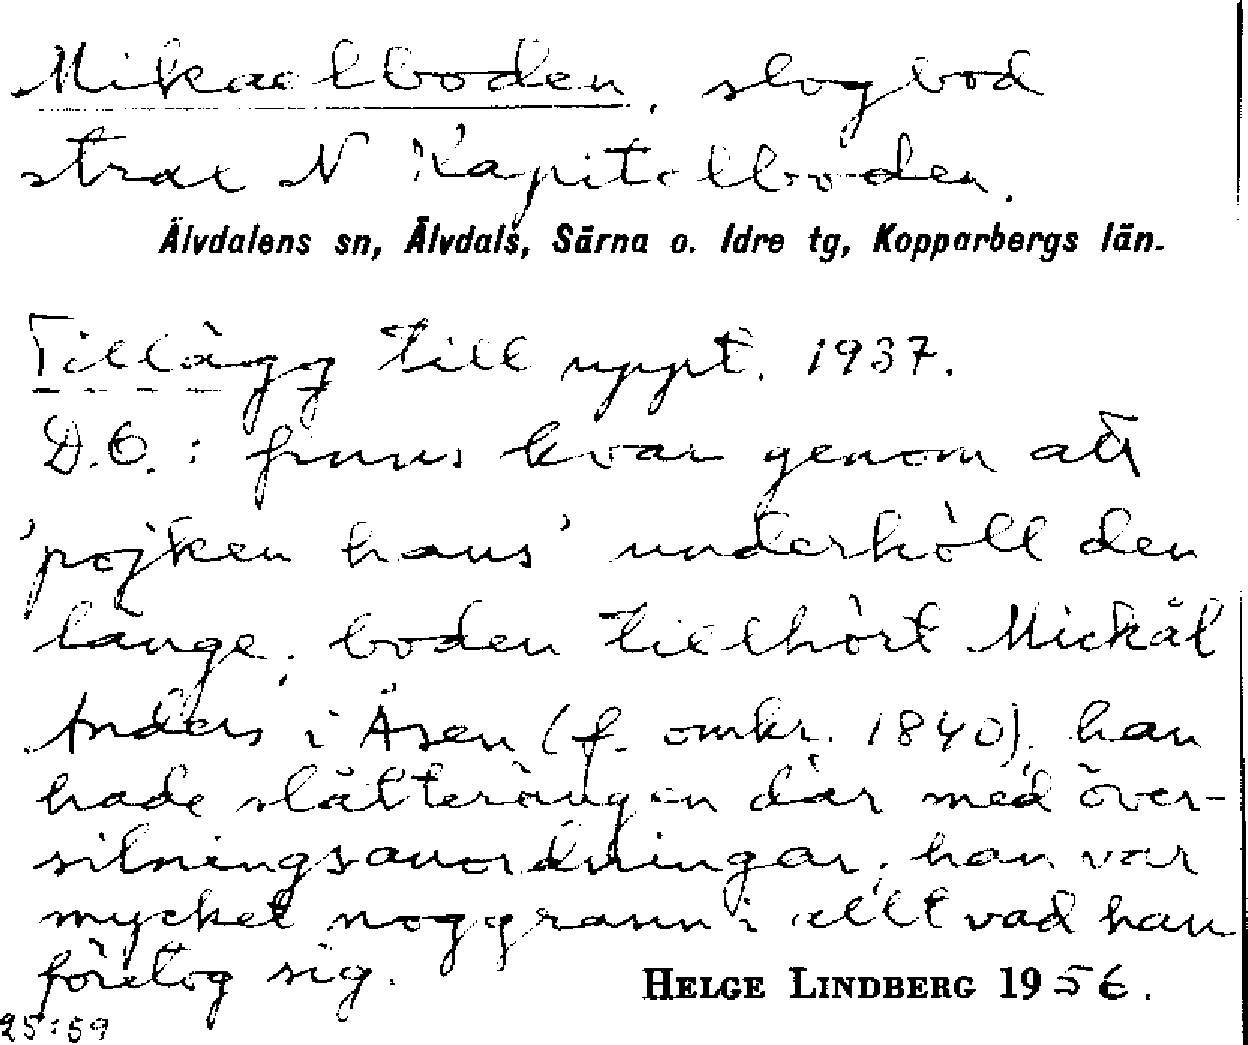 Mikaelboden, slogbod
strax N Kapitelboden.
Älvdalens sn, Älvdals, Särna o. Idre tg, Kopparbergs län.
Tillägg till uppt. 1937.
D.O.: finns kvar genom att
'pojken hans' underhöll den
länge; boden tillhört Mickäl
Anders i Åsen (f. omkr. 1840); han
hade slåtterängen där med över-
silningsanordningar; han var
mycket noggrann i allt vad han
företog sig.
HELGE LINDBERG 1956.
25:59